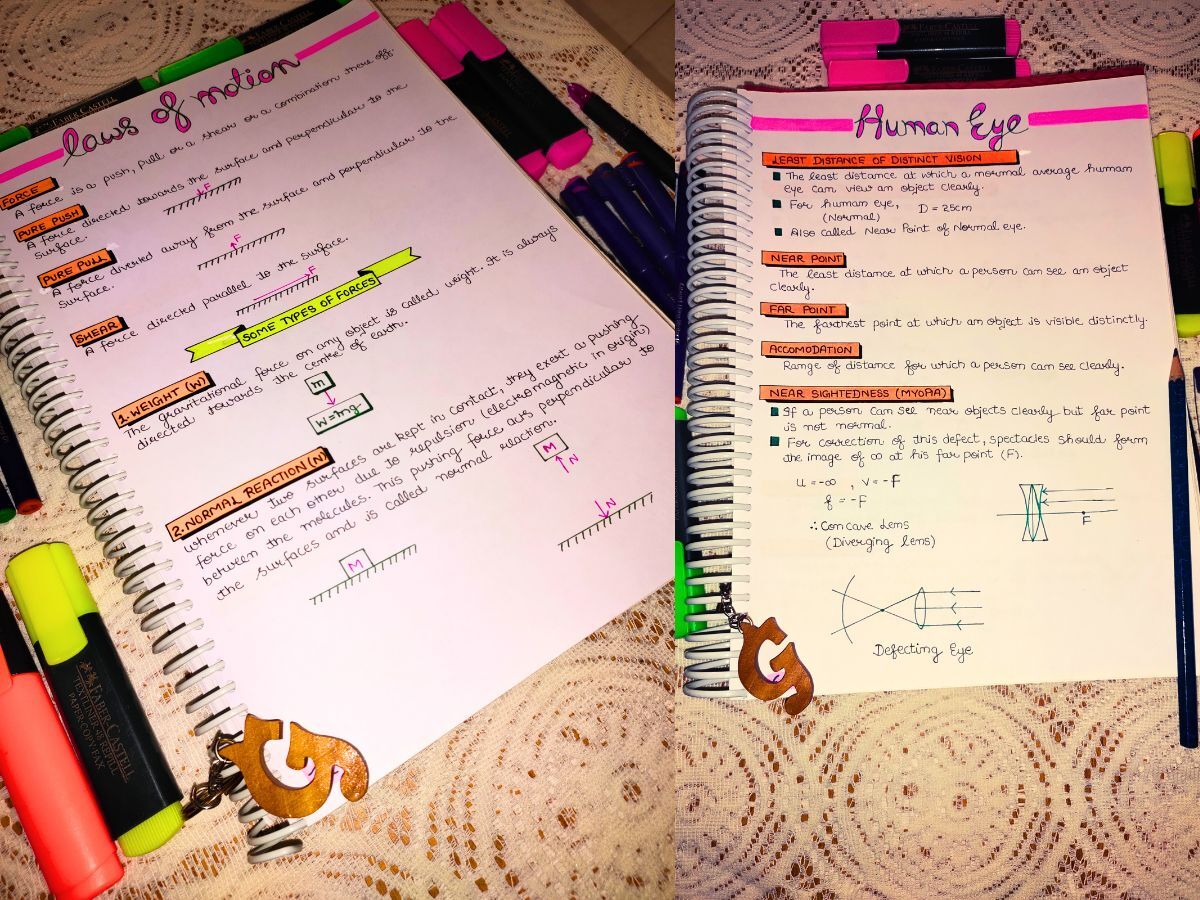 Laws of motion
FORCE
A force is a push, pull or a shear or a combination there off.
PURE PUSH
A force directed towards the surface and perpendicular to the
surface.
F
PURE PULL
A force diverted away from the surface and perpendicular to the
surface.
F
SHEAR
A force directed parallel to the surface.
F
SOME TYPES OF FORCES
1. WEIGHT (W)
The gravitational force on any object is called weight. It is always
directed towards the centre of earth.
m
W=mg
2. NORMAL REACTION (N)
whenever two surfaces are kept in contact, they exert a pushing
force on each other due to repulsion (electromagnetic in origin)
between the molecules. This pushing force acts perpendicular to
the surfaces and is called normal reaction.
M
N
N
M
FABER CASTELL
FABER-CASTELL
TEXTLINER 48 REFILL
PAPER/COPY/FAX
G
Human Eye
LEAST DISTANCE OF DISTINCT VISION
The least distance at which a normal average human
eye can view an object clearly.
For human eye, D = 25cm
(Normal)
Also called Near Point of Normal eye.
NEAR POINT
The least distance at which a person can see an object
clearly.
FAR POINT
The farthest point at which an object is visible distinctly.
ACCOMODATION
Range of distance for which a person can see clearly.
NEAR SIGHTEDNESS (MYOPIA)
If a person can see near objects clearly but far point
is not normal.
For correction of this defect, spectacles should form
the image of ∞ at his far point (F).
u = -∞ , v = -F
f = -F
∴ Concave Lens
(Diverging lens)
F
Defecting Eye
G